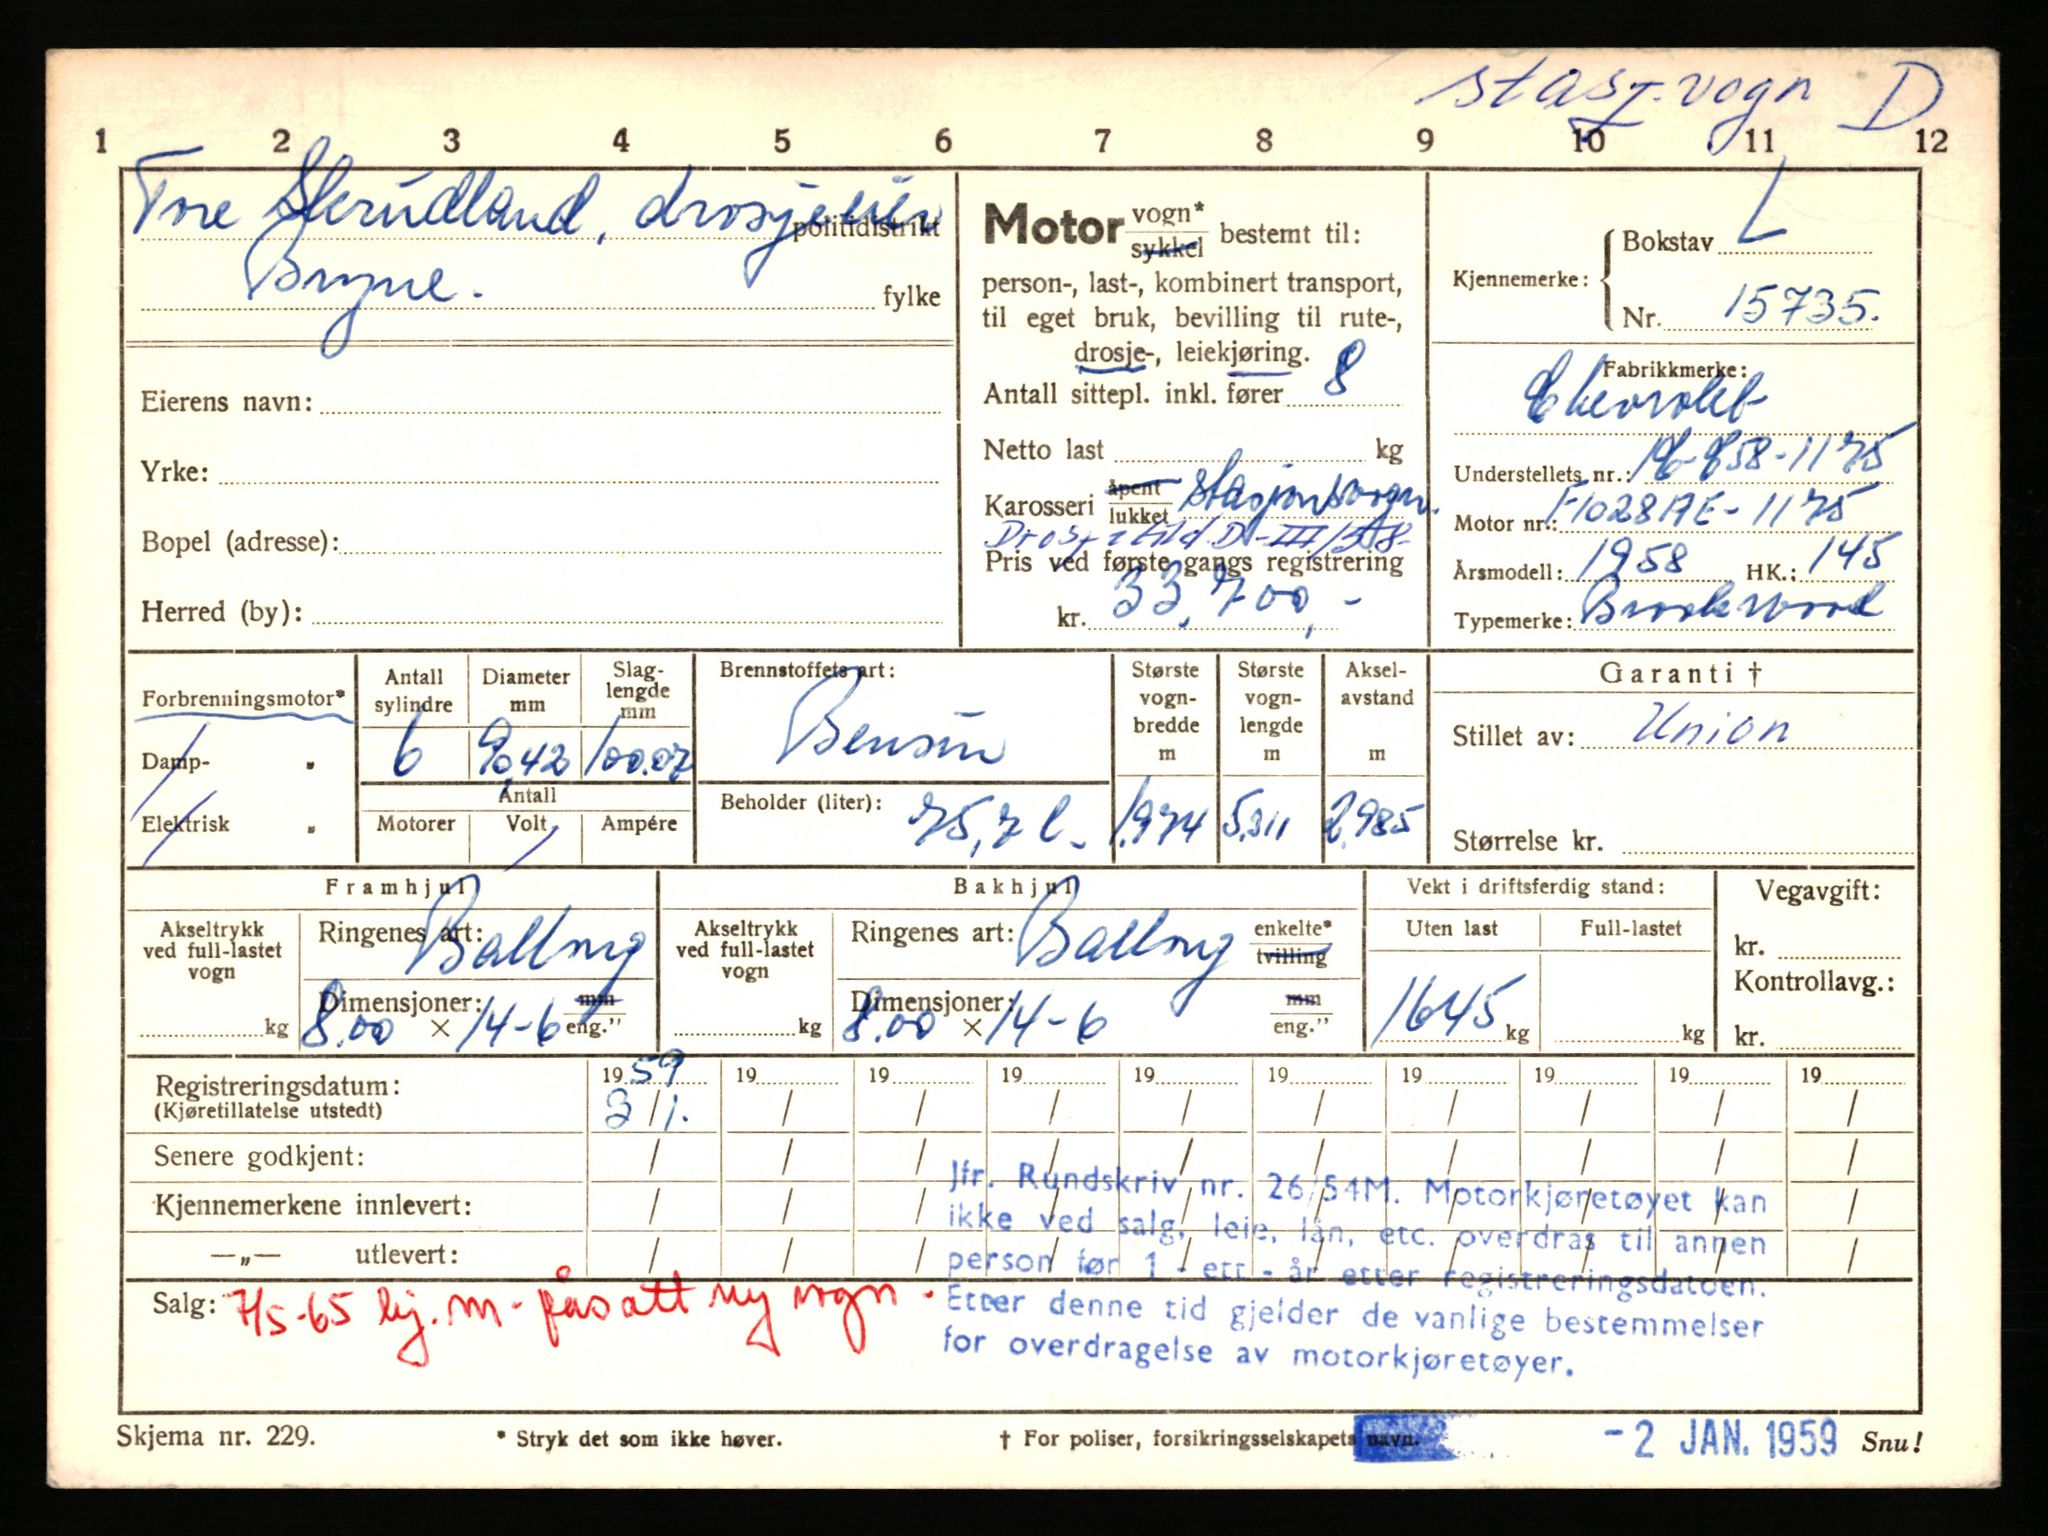 stasj.vogn D
1 2 3 4 5 6 7 8 9 10 11 12
Tore Skrudland, drosjeeier
politidistrikt
Bryne.
fylke
Eierens navn:
Yrke:
Bopel (adresse):
Herred (by):
Motor vogn* sykkel bestemt til:
person-, last-, kombinert transport,
til eget bruk, bevilling til rute-,
drosje-, leiekjøring.
Antall sittepl. inkl. fører 8
Netto last kg
Karosseri åpent lukket stasjonsvogn.
Pris ved første gangs registrering
kr. 33.700,-
Kjennemerke: Bokstav L
Nr. 15735.
Fabrikkmerke:
Chevrolet
Understellets nr.: 1175
Motor nr.: F1028AE-1175
Årsmodell: 1958 HK.: 145
Typemerke: Brookwood
Forbrenningsmotor*
Damp- „
Elektrisk „
Antall sylindre
6
Diameter mm
90,42
Slaglengde mm
100.07
Antall
Motorer Volt Ampére
Brennstoffets art:
Bensin
Beholder (liter): 75,7 l.
Største vognbredde m
1,974
Største vognlengde m
5,311
Akselavstand m
2,985
Garanti †
Stillet av: Union
Størrelse kr.
Framhjul
Akseltrykk ved full-lastet vogn
kg
Ringenes art: Ballong
Dimensjoner: mm
8.00 × 14-6 eng.”
Bakhjul
Akseltrykk ved full-lastet vogn
kg
Ringenes art: Ballong enkelte* tvilling
Dimensjoner: mm
8.00 × 14-6 eng.”
Vekt i driftsferdig stand:
Uten last Full-lastet
1645 kg kg
Vegavgift:
kr.
Kontrollavg.:
kr.
Registreringsdatum: 19 59 19 19 19 19 19 19 19 19 19
(Kjøretillatelse utstedt) 3/1. / / / / / / / / /
Senere godkjent: / / / / / / / / / /
Kjennemerkene innlevert: / / / / / / / / / /
—„— utlevert: / / / / / / / / / /
Jfr. Rundskriv nr. 26/54M. Motorkjøretøyet kan
ikke ved salg, leie, lån, etc. overdras til annen
person før 1 - ett - år etter registreringsdatoen.
Etter denne tid gjelder de vanlige bestemmelser
for overdragelse av motorkjøretøyer.
Salg: 7/5-65 kj.m. påsatt ny vogn.
Skjema nr. 229. * Stryk det som ikke høver. † For poliser, forsikringsselskapets navn. -2 JAN. 1959 Snu!